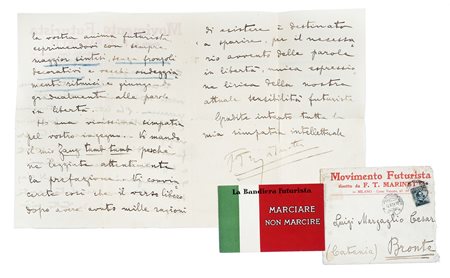 la vostra anima futurista
esprimendovi con sempre
maggior sintesi, senza fronzoli
decorativi e vecchi ondeggia
menti ritmici, e giunga
gradualmente alle parole
in libertà.
Ho una vivissima simpatia
pel vostro ingegno. Vi mando
il mio Zang tumb tumb perchè
ne leggiate attentamente
la prefazione. Vi convin
cerete così che il verso libero
dopo avere avuto mille ragioni
di esistere è destinato
a sparire, per il necessa
rio avvento delle parole
in libertà, unica espressio
ne lirica della nostra
attuale sensibilità futurista
Gradite intanto tutta la
mia simpatia intellettuale
La Bandiera Futurista
MARCIARE
NON MARCIRE
Movimento Futurista
diretto da F. T. MARINETTI
MILANO
Luigi Marzaglio Cesar
(Catania) Bronte